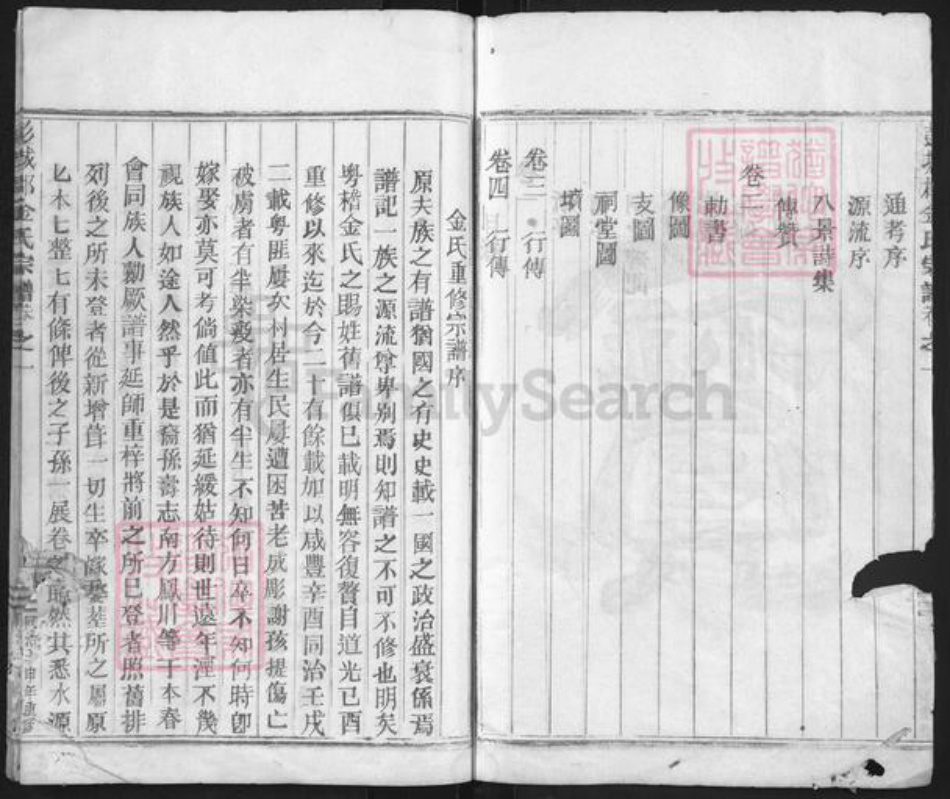 通考序
源流序
八景詩集
傳贊
卷二
勅書
像圖
支圖
祠堂圖
墳圖
卷三 行傳
卷四 行傳
金氏重修宗譜序
原夫族之有譜猶國之有史史載一國之政治盛衰係焉
譜記一族之源流尊卑別焉則知譜之不可不修也明矣
粤稽金氏之賜姓舊譜俱已載明無容復贅自道光己酉
重修以來迄於今二十有餘載加以咸豐辛酉同治壬戌
二載粤匪屢次村居生民屢遭困苦老成彫謝孩提傷亡
被虜者有半染疫者亦有半生不知何日卒不知何時卽
嫁娶亦莫可考倘值此而猶延緩姑待則世遠年湮不幾
視族人如途人然乎於是裔孫壽志南方鳳川等于本春
會同族人勷厥譜事延師重梓將前之所已登者照舊排
列後之所未登者從新增葺一切生卒嫁娶墓所之屬原
原本本整整有條俾後之子孫一展卷之餘然其悉水源
彭城郡金氏宗譜卷之一
FamilySearch